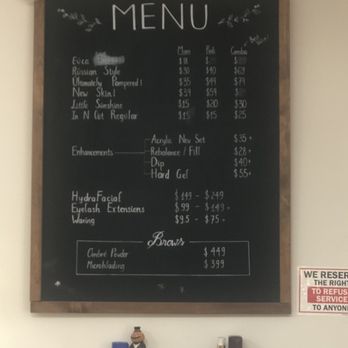 MENU
Mani Pedi Combo
Euca
Russian Style $30 $40 $69
Ultimately Pampered! $35 $44 $79
New Skin! $39 $54
Little Sunshine $15 $20 $30
In N Out Regular $15 $15 $25
Acrylic New Set $35+
Enhancements Rebalance / Fill $28+
Dip $40+
Hard Gel $55+
HydraFacial $149 - $249
Eyelash Extensions $99 - $149+
Waxing $9.5 - $75+
Brows
Ombré Powder $449
Microblading $399
WE RESERVE
THE RIGHT
TO REFUSE
SERVICE
TO ANYONE